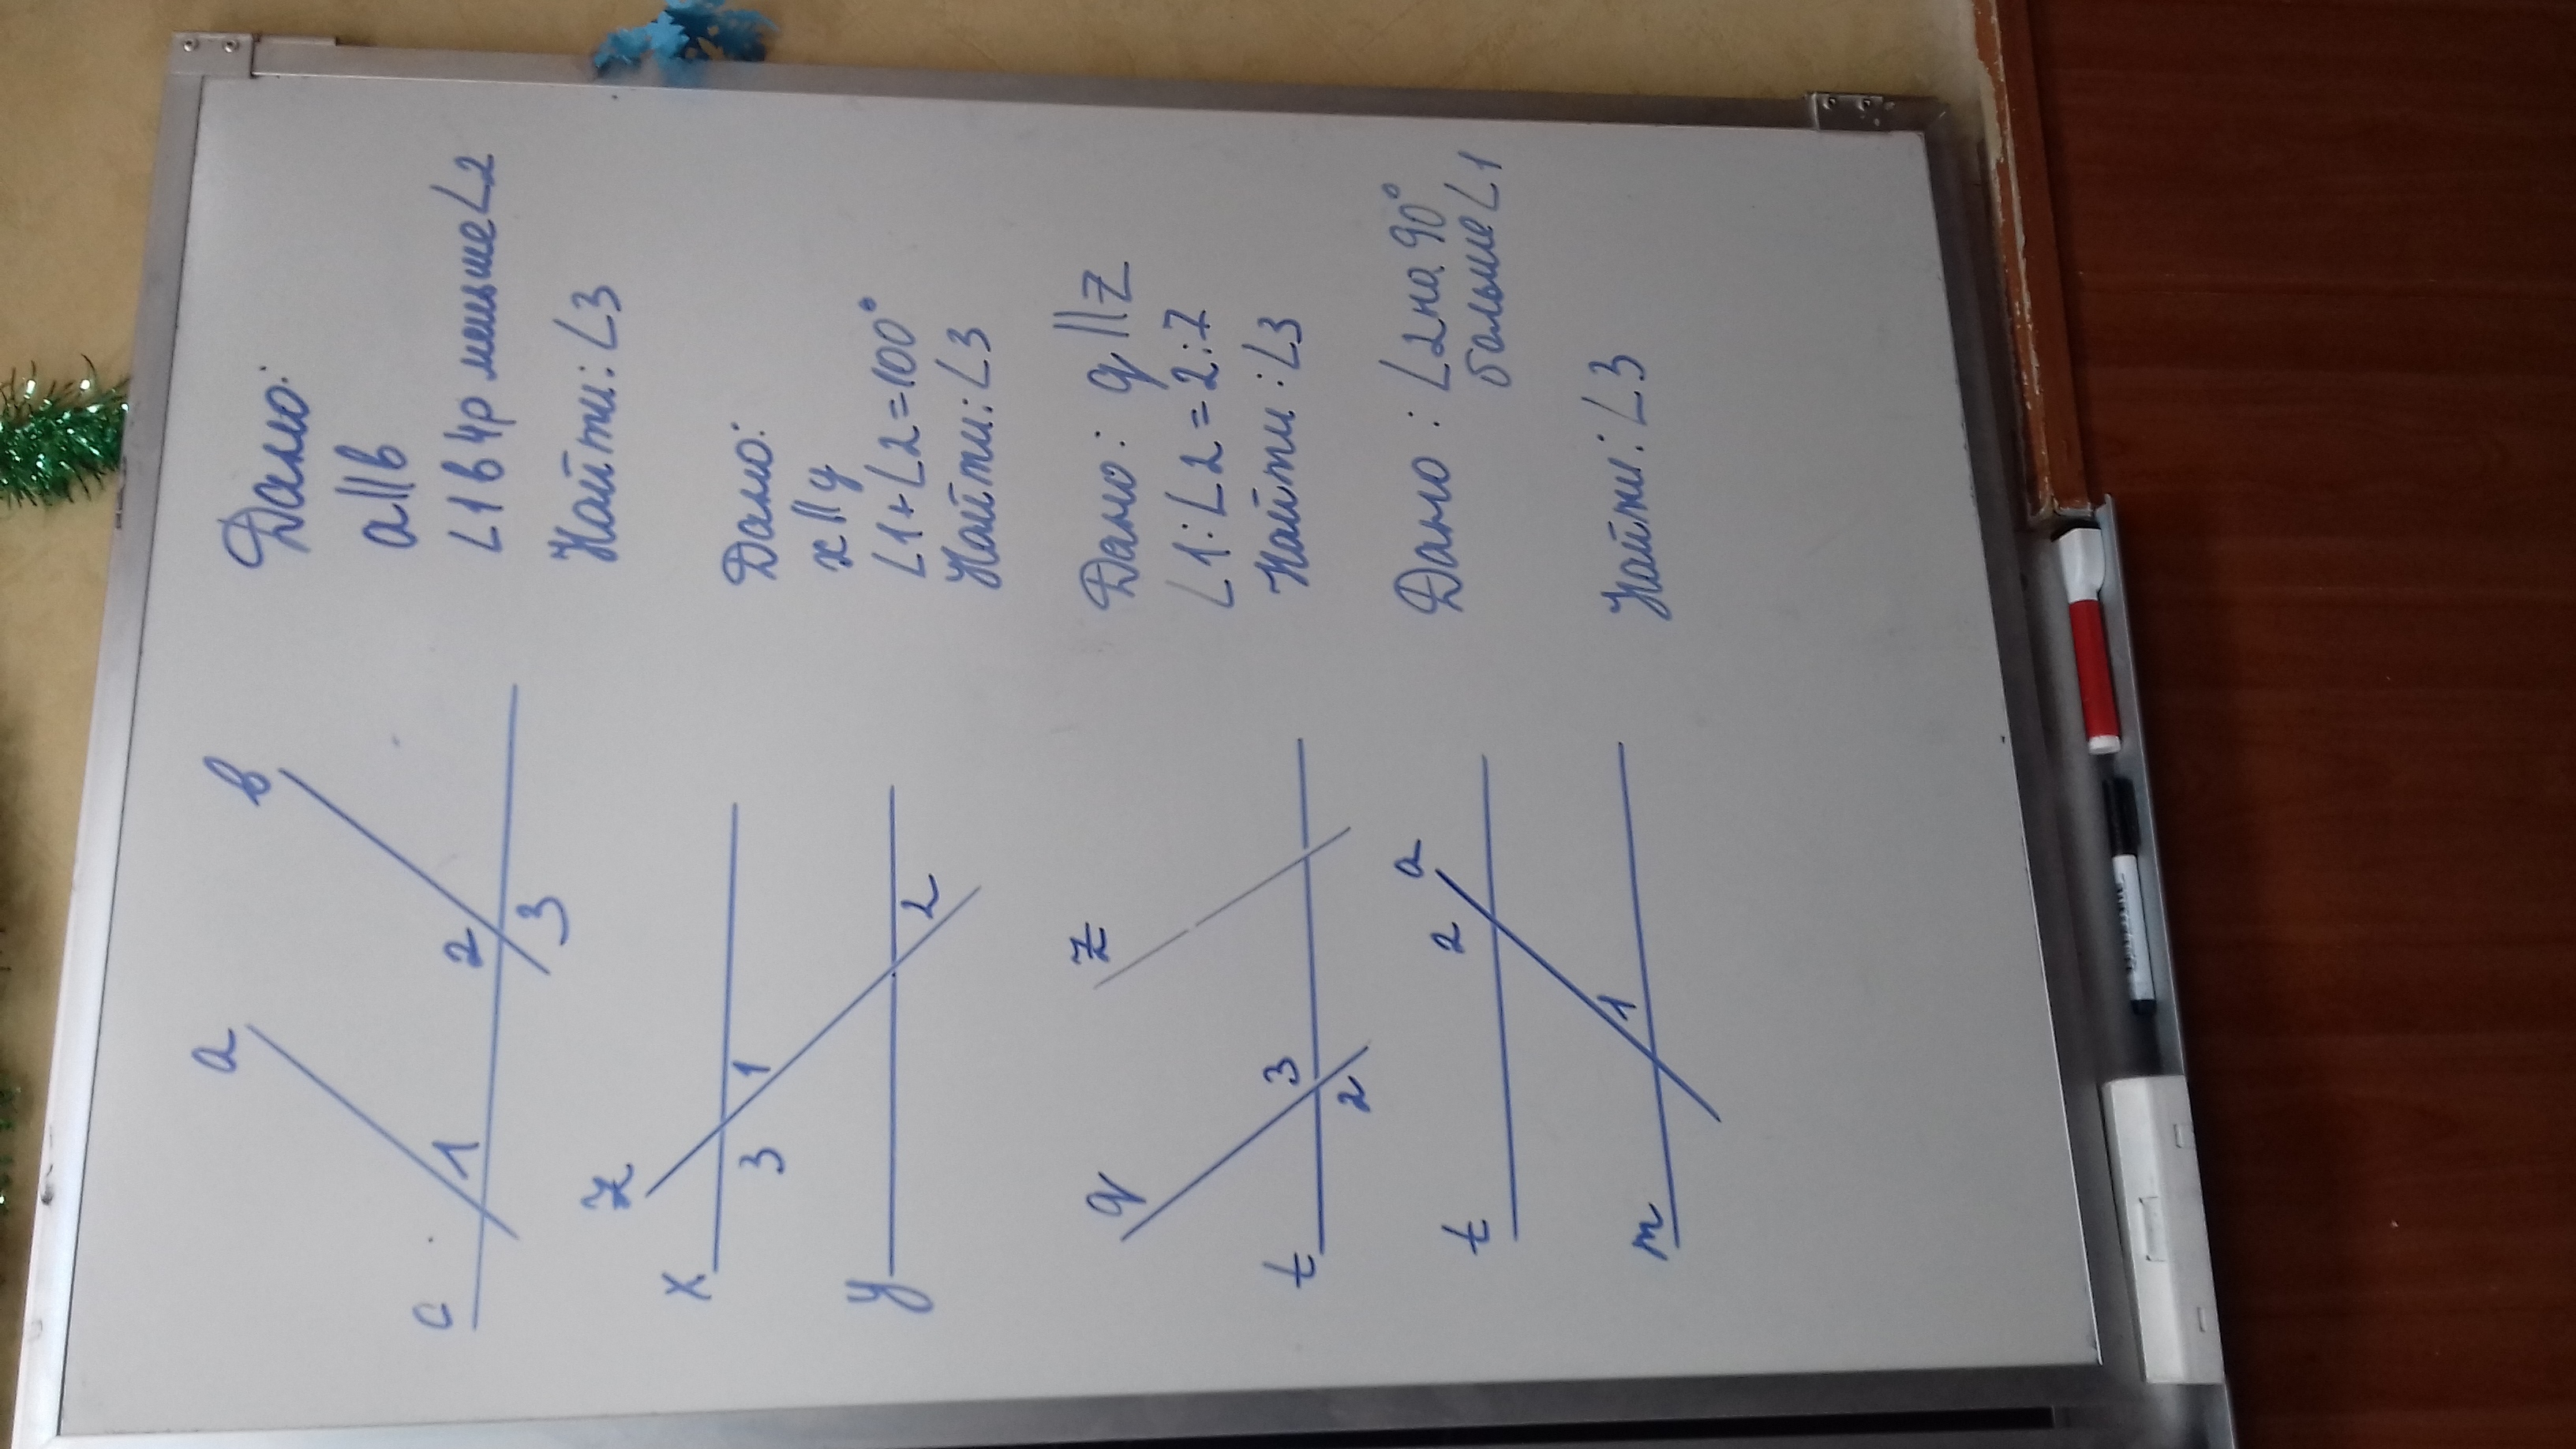 a
в
c
1
2
3
Дано:
a||в
∠1 в 4р меньше∠2
Найти: ∠3
z
x
3
1
y
2
Дано:
x||y
∠1+∠2=100°
Найти: ∠3
q
z
t
3
2
Дано: q||z
∠1:∠2=2:7
Найти: ∠3
t
2
a
m
1
Дано: ∠2 на 90°
больше∠1
Найти: ∠3